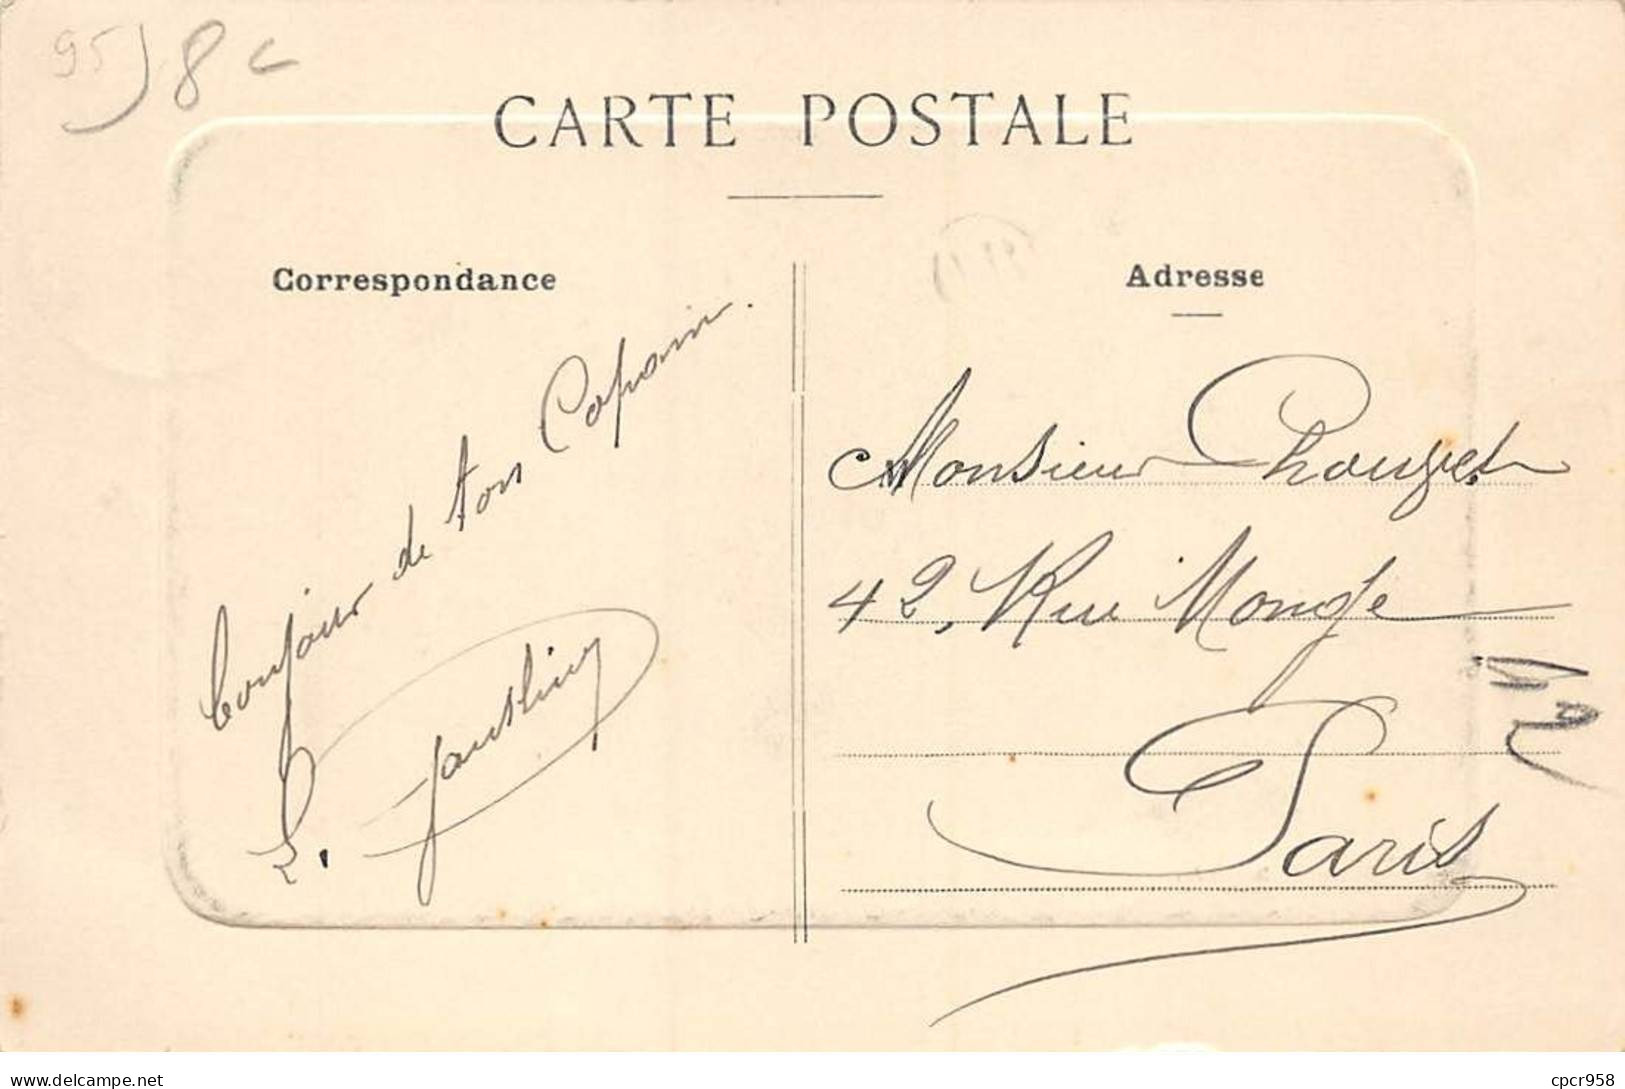 95) 8 c
CARTE POSTALE
Correspondance
Adresse
bonjour de ton Copain.
L.
Monsieur
42, Rue Monge
Paris
delcampe.net
cpcr958